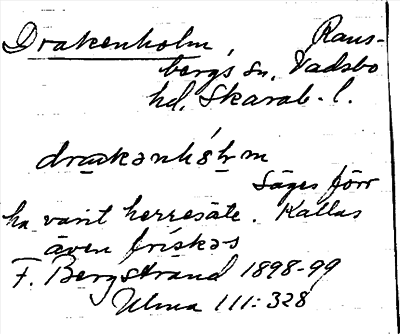 Drakenholm, Rans-
bergs sn, Vadsbo
hd, Skarab. l.
drakənhólm
Säges förr
ha varit herresäte. Kallas
även friskəs
F. Bergstrand 1898-99
Ulma 111:328